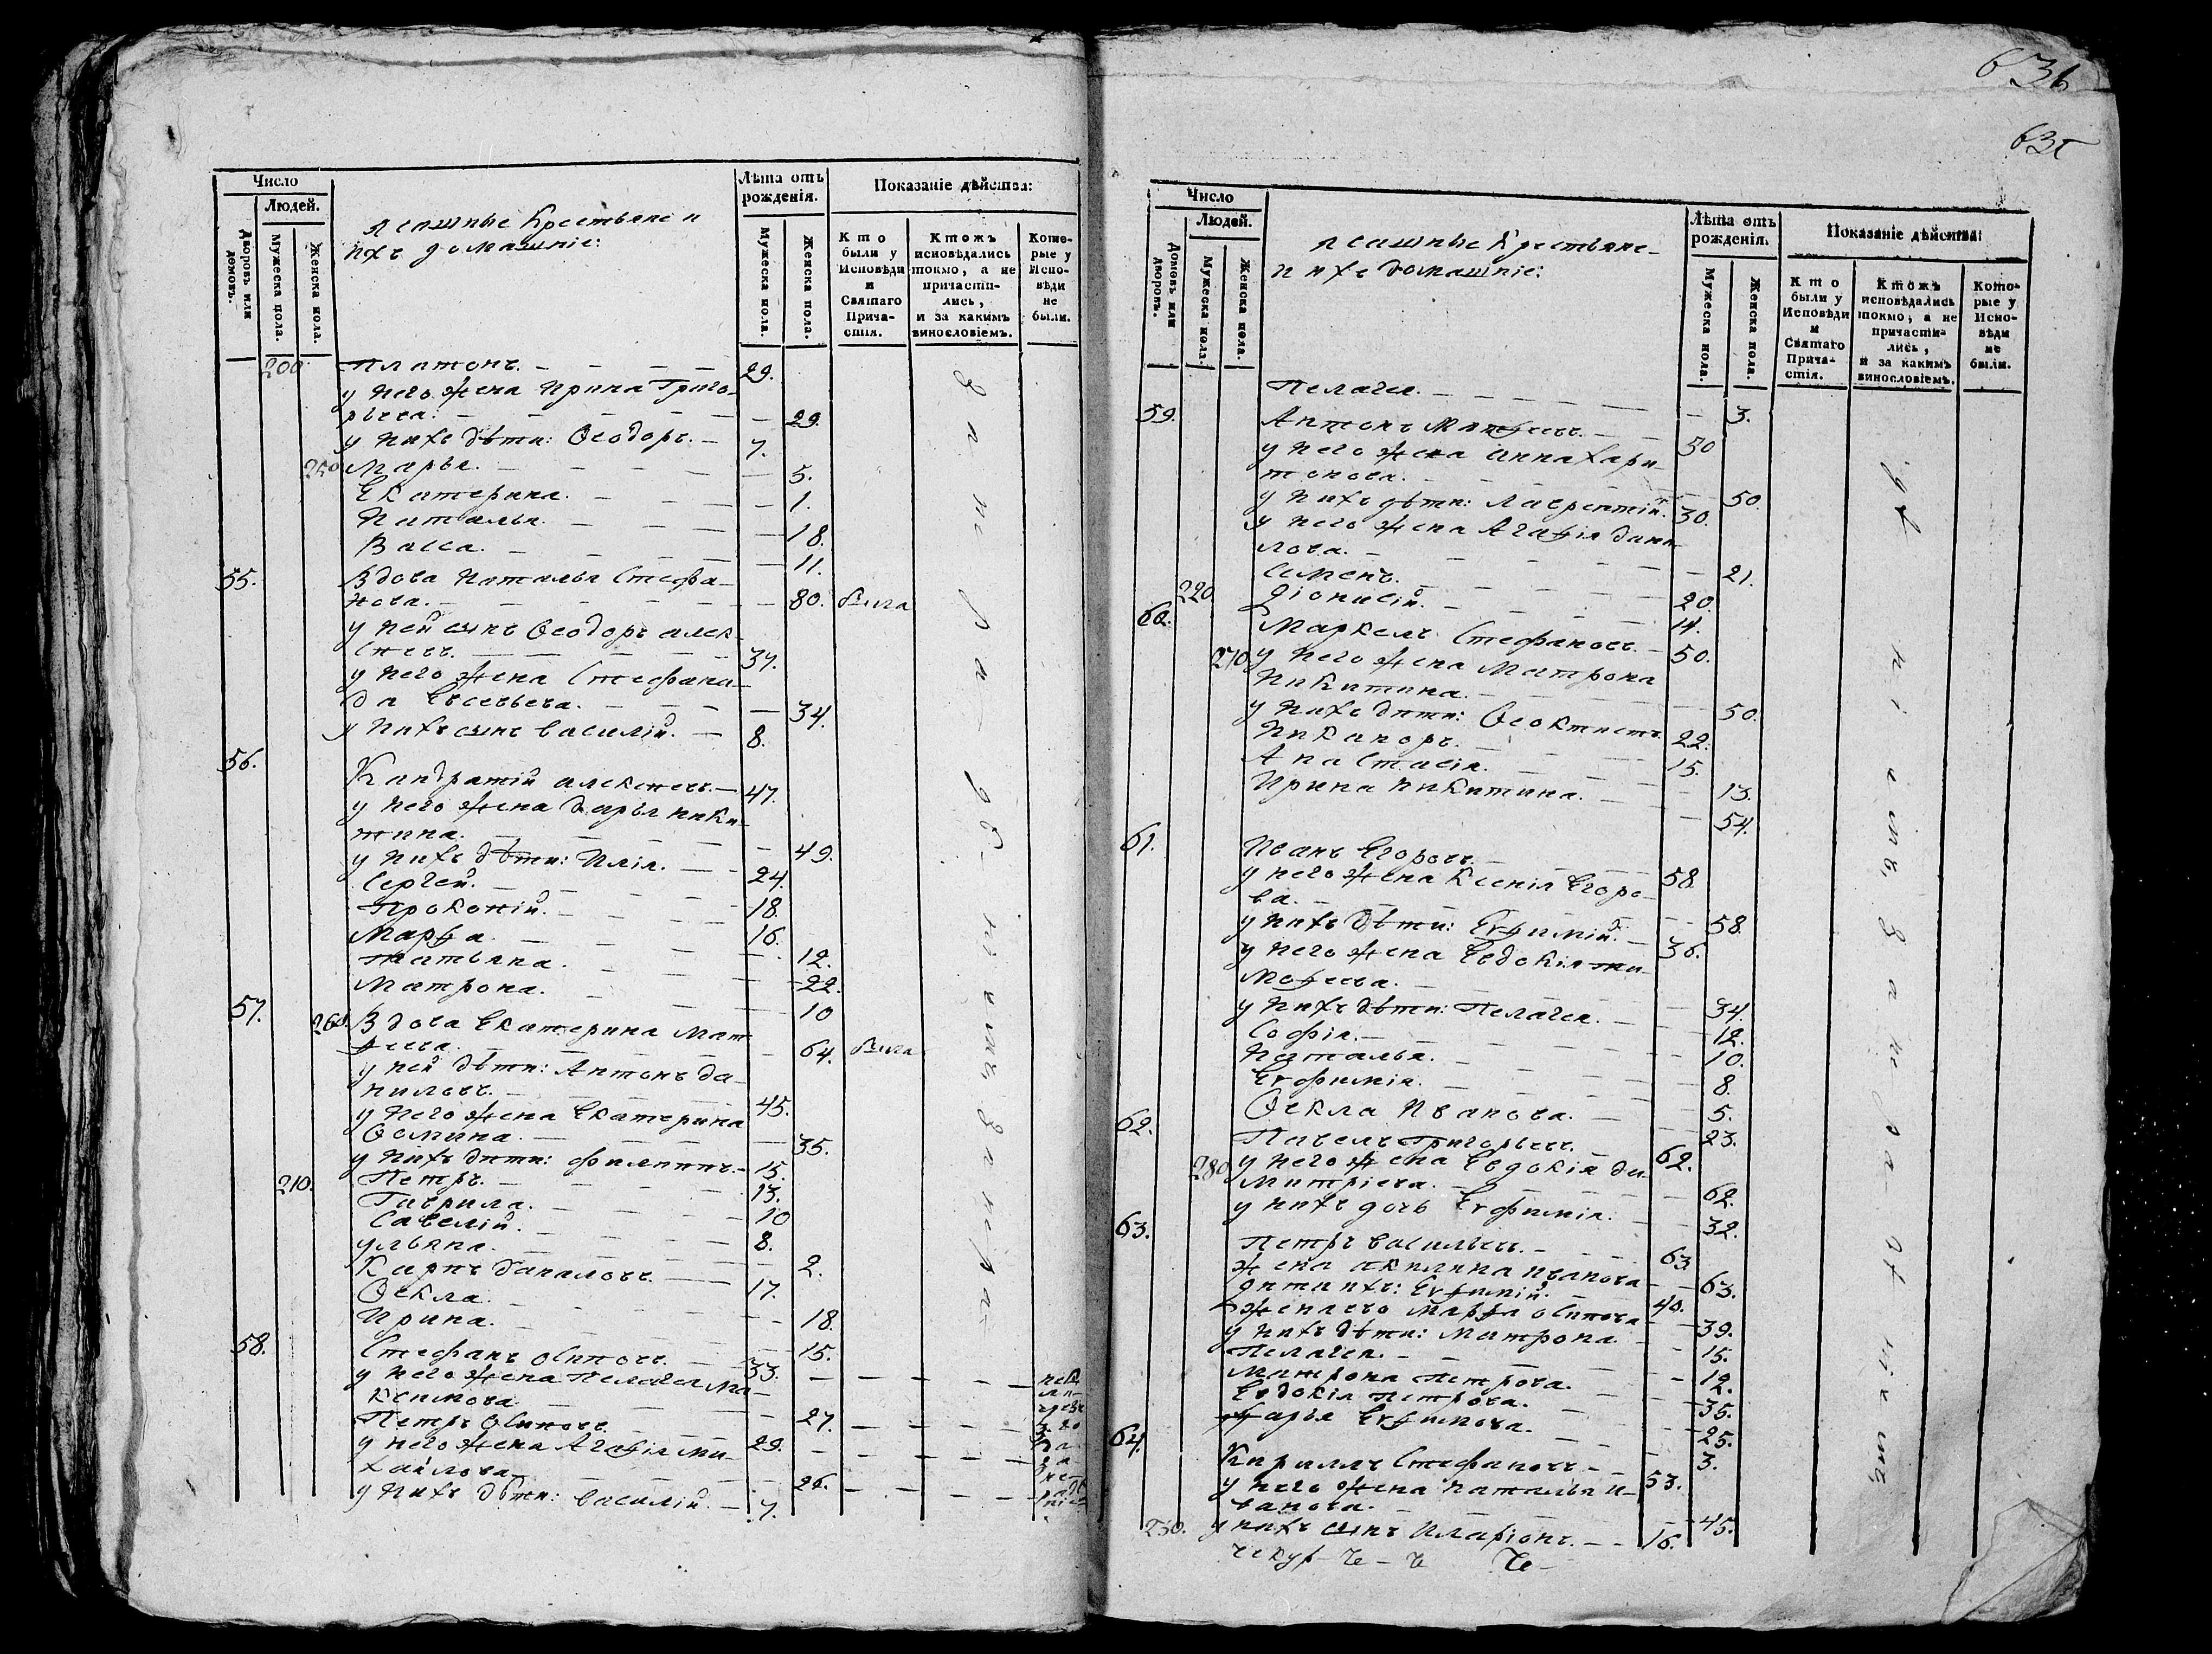 Число
Людей.
Дворовъ или домовъ.
Мужеска пола.
Женска пола.
ясашные Крестьяне и
ихъ домашніе:
Лѣта отъ рожденія.
Мужеска пола.
Женска пола.
Показаніе дѣйства:
Кто были у Исповѣди и Святаго Причастія.
Ктожъ исповѣдались токмо, а не причастились, и за какимъ винословіемъ.
Которые у Исповѣди не были.
200 Платонъ. 29.
у него жена Ирина Григо-
рьева. 29.
у нихъ дѣти: Ѳеодоръ. 7.
250 Марья. 5.
Екатерина. 1.
Наталья. 18.
Васса. 11.
55. Вдова Наталья Стефа-
нова. 80. была
у ней сынъ Ѳеодоръ алек-
сѣевъ. 37.
у него жена Стефани-
да Евсевьева. 34.
у нихъ сынъ василій. 8.
56. Кандратій алексѣевъ. 47.
у него жена дарья ники-
тина. 49.
у нихъ дѣти: Илія. 24.
Сергей. 18.
Прокопій. 16.
Марѳа. 12.
татьяна. 22.
Матрона. 10
57. 260. Вдова Екатерина Мат
ѳеева. 64. была
у ней дѣти: Антонъ да-
ниловъ. 45.
у него жена Екатерина
Ѳомина. 35.
у нихъ дѣти: филиппъ. 15.
210. Петръ. 13.
Гаврила. 10
Савелій. 8.
ульяна. 2.
Карпъ даниловъ. 17.
Ѳекла. 18.
Ирина. 15.
58. Стефанъ осиповъ. 33.
у него жена Пелагея Ма-
ксимова. 27.
Петръ Осиповъ. 29.
у него жена Агаѳія Ми-
хайлова. 26.
у нихъ дѣти: василій. 7.
за не ра-
дѣ-
ніемъ
Число
Людей.
Домовъ или дворовъ.
Мужеска пола.
Женска пола.
ясашные Крестьяне
и ихъ домашніе:
Лѣта отъ рожденія.
Мужеска пола.
Женска пола.
Показаніе дѣйства:
Кто были у Исповѣди и Святаго Причастія.
Ктожъ исповѣдались токмо, а не причастились, и за какимъ винословіемъ.
Которые у Исповѣди не были.
Пелагея. 3.
59. Антонъ Матѳеевъ. 50
у него жена анна хари-
тонова. 50.
у нихъ дѣти: Лаврентій. 30.
у него жена Агаѳія дани-
лова. 21.
Семенъ. 20.
220. Діонисій. 14.
60. Маркелъ Стефановъ. 50.
270. у него жена Матрона
Никитина. 50.
у нихъ дѣти: Ѳеоктистъ. 22.
Никаноръ. 15.
Анастасія. 13.
Ирина никитина. 54.
61. Иванъ Егоровъ. 58.
у него жена Ксенія Егоро-
ва. 58.
у нихъ дѣти: Евѳимій. 36.
у него жена Евдокія ти-
моѳеева. 34.
у нихъ дѣти: Пелагея. 12.
Софія. 10.
Наталья. 8.
Евфимія. 5.
Ѳекла Иванова. 23.
62. Павелъ Григорьевъ. 62.
280 у него жена Евдокія ди-
митріева. 62.
у нихъ дочь Евфимія. 32.
63. Петръ васильевъ. 63
жена акилина иванова 63.
дѣти ихъ: Евѳимій. 40.
жена его Марѳа осипова 39.
у нихъ дѣти: Матрона. 15.
Пелагея. 12.
Матрона петрова. 35.
Евдокія петрова. 25.
дарья Евѳимова. 3.
64. Кириллъ Стефановъ 53.
у него жена наталья и-
ванова. 45.
230. у нихъ сынъ Иларіонъ. 16.
дѣ
ніемъ
за нера-
дѣ
ніемъ